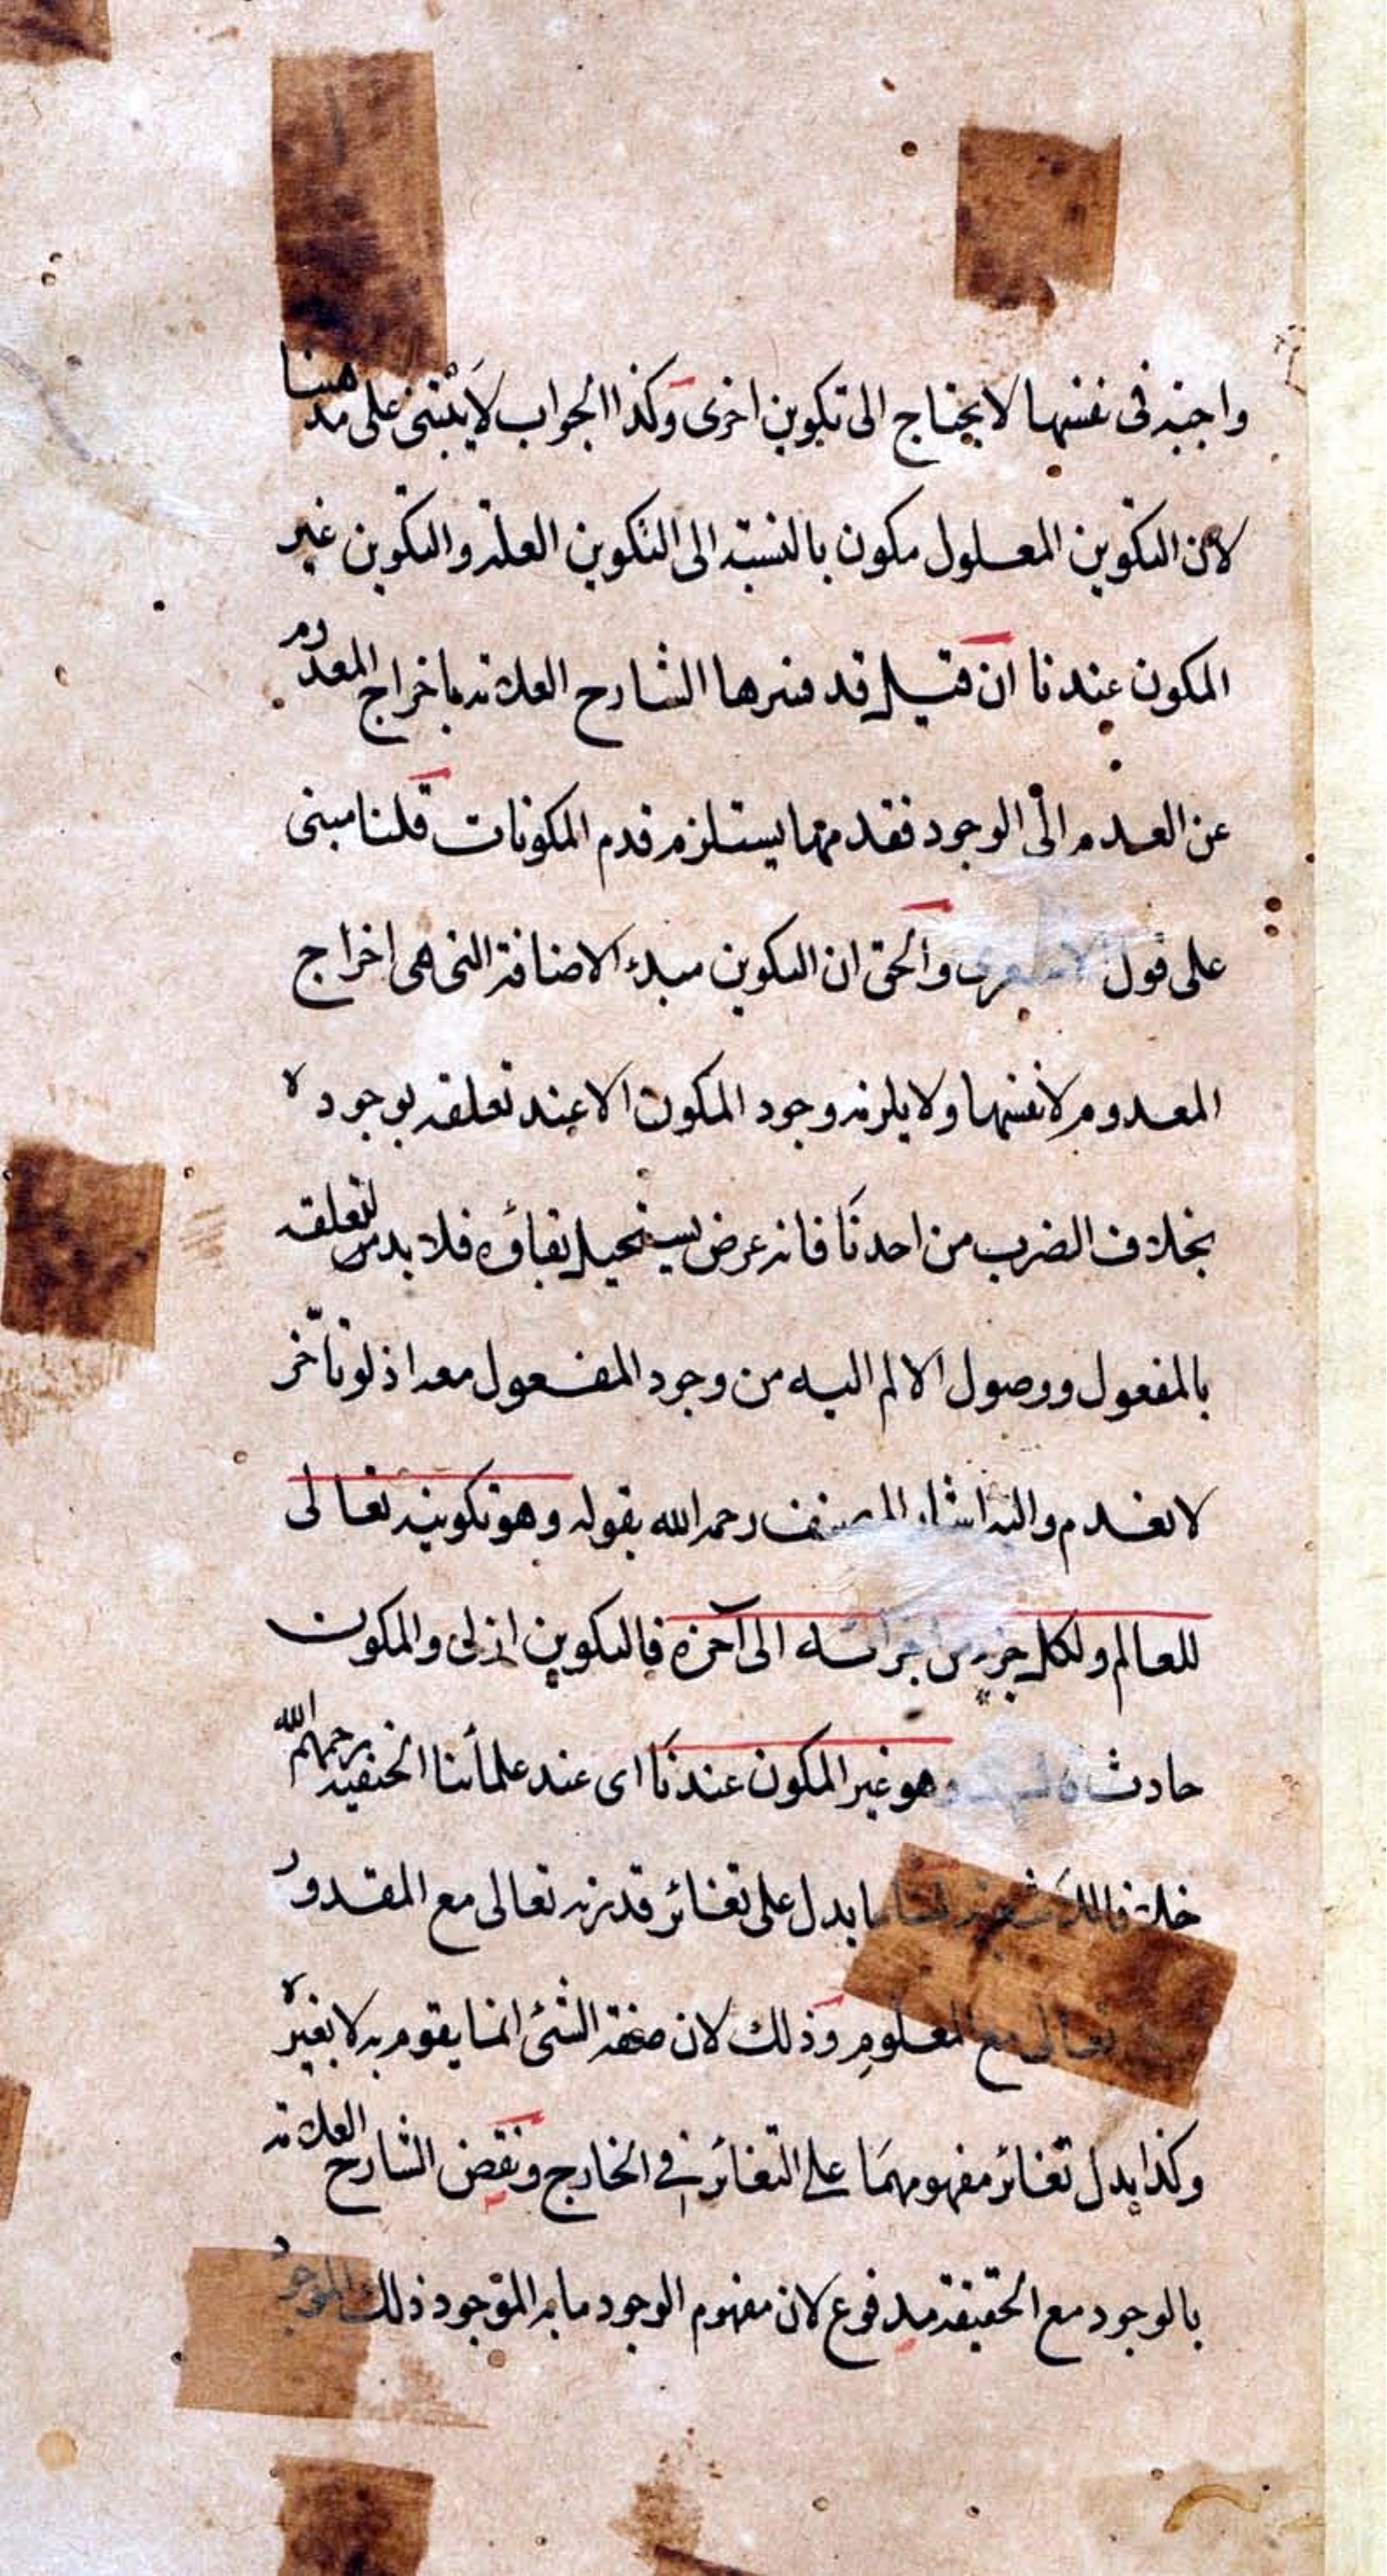 واجبة فى نفسها لا يحتاج الى تكوين اخرى وكذا الجواب لا يبتنى على مذهبنا
لان التكوين المعلول مكون بالنسبة الى التكوين العلة والتكوين غير
المكون عندنا ان قيل قد فسرها الشارح العلامة باخراج المعدوم
عن العدم الى الوجود فقدمها يستلزم قدم المكونات قلنا مبنى
على قول الاشعرى والحق ان التكوين مبدء الاضافة التى هى اخراج
المعدوم لا نفسها ولا يلزمه وجود المكون الا عند تعلقه بوجوده
بخلاف الضرب من احدنا فانه عرض يستحيل بقاؤه فلا بد من لتعلقه
بالمفعول ووصول الالم اليه من وجود المفعول معه اذ لو تأخر
لانعدم واليه اشار المصنف رحمه الله بقوله وهو تكوينه تعالى
للعالم ولكل جزء من اجزائه الى آخره فالتكوين ازلى والمكون
حادث وهو غير المكون عندنا اى عند علمائنا الحنفية رحمهم الله
ما يدل على تغائر قدرته تعالى مع المقدور
تعالى مع المعلوم وذلك لان صفة الشئ انما يقوم به لا بغيره
وكذا يدل تغائر مفهومهما على التغائر فى الخارج ونقض الشارح العلامة
بالوجود مع الحقيقة مدفوع لان مفهوم الوجود ما به الموجود ذلك الموجود